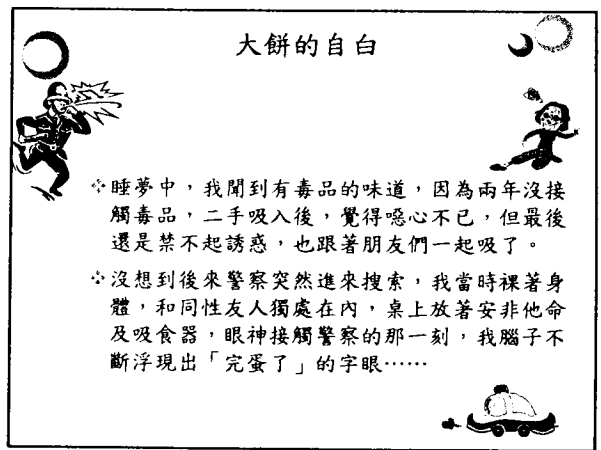 大餅的自白
❖睡夢中，我聞到有毒品的味道，因為兩年沒接
觸毒品，二手吸入後，覺得噁心不已，但最後
還是禁不起誘惑，也跟著朋友們一起吸了。
❖沒想到後來警察突然進來搜索，我當時裸著身
體，和同性友人獨處在內，桌上放著安非他命
及吸食器，眼神接觸警察的那一刻，我腦子不
斷浮現出「完蛋了」的字眼……